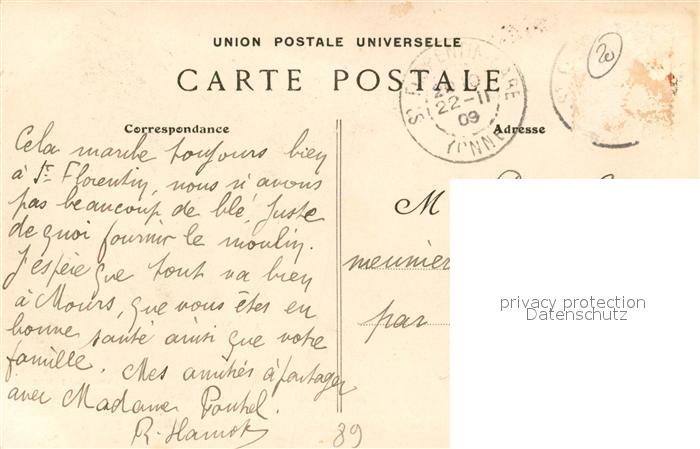 UNION POSTALE UNIVERSELLE
CARTE POSTALE
20
22-11
09
YONNE
Correspondance
Adresse
Cela marche toujours bien
à St Florentin, nous n'avons
pas beaucoup de blé, juste
de quoi fournir le moulin.
J'espère que tout va bien
à Mours, que vous êtes en
bonne santé ainsi que votre
famille. Mes amitiés à partager
avec Madame
R. Hamot
M
meunier
par
89
privacy protection
Datenschutz